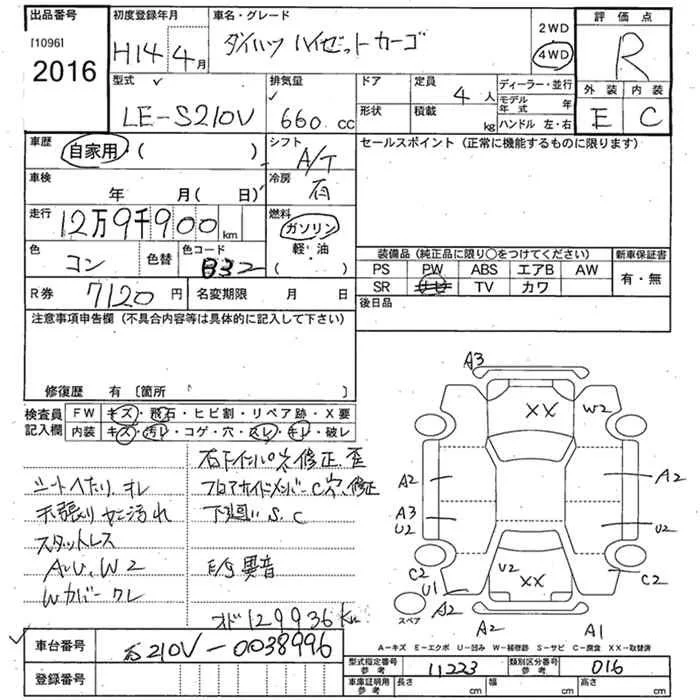 出品番号
[1096]
2016
初度登録年月
H14年4月
車名・グレード
ダイハツ ハイゼットカーゴ
2WD
4WD
評価点
R
外装 内装
E C
型式
LE-S210V
排気量
660 cc
ドア
形状
定員
4人
積載
kg
ディーラー・並行
モデル年式 年
ハンドル 左・右
車歴
自家用・( )
シフト
A/T
セールスポイント(正常に機能するものに限ります)
車検
年 月(日)
冷房
走行
12万9千900km
燃料
ガソリン
軽・油
( )
色
コン
色替
色コード
B32
装備品(純正品に限り○をつけてください)
新車保証書
PS PW ABS エアB AW
有・無
SR ナビ TV カワ
R券 7120円
名変期限 月 日
後日品
注意事項申告欄(不具合内容等は具体的に記入して下さい)
修復歴 有 〔箇所 〕
検査員記入欄
FW キズ・飛石・ヒビ割・リペア跡・X要
内装 キズ・汚レ・コゲ・穴・スレ・キレ・破レ
シートヘたり、キレ
天張りヤニ汚れ
スタットレス
A・U、W2
Wカバークレ
右下インパ穴修正、歪
フロアサイドメンバーC穴、修正
下廻りS、C
E/G異音
オド129936km
A3
XX
W2
A2
A2
A3
U2
U2
U2
XX
C2
U1
C2
A2
A2
A1
スペア
A-キズ E-エクボ U-凹み W-補修跡 S-サビ C-腐食 XX-取替済
車台番号
S210V-0038996
登録番号
型式指定番号
参考
11223
類別区分番号
参考
016
車庫証明用
参考
長さ cm
幅 cm
高さ cm